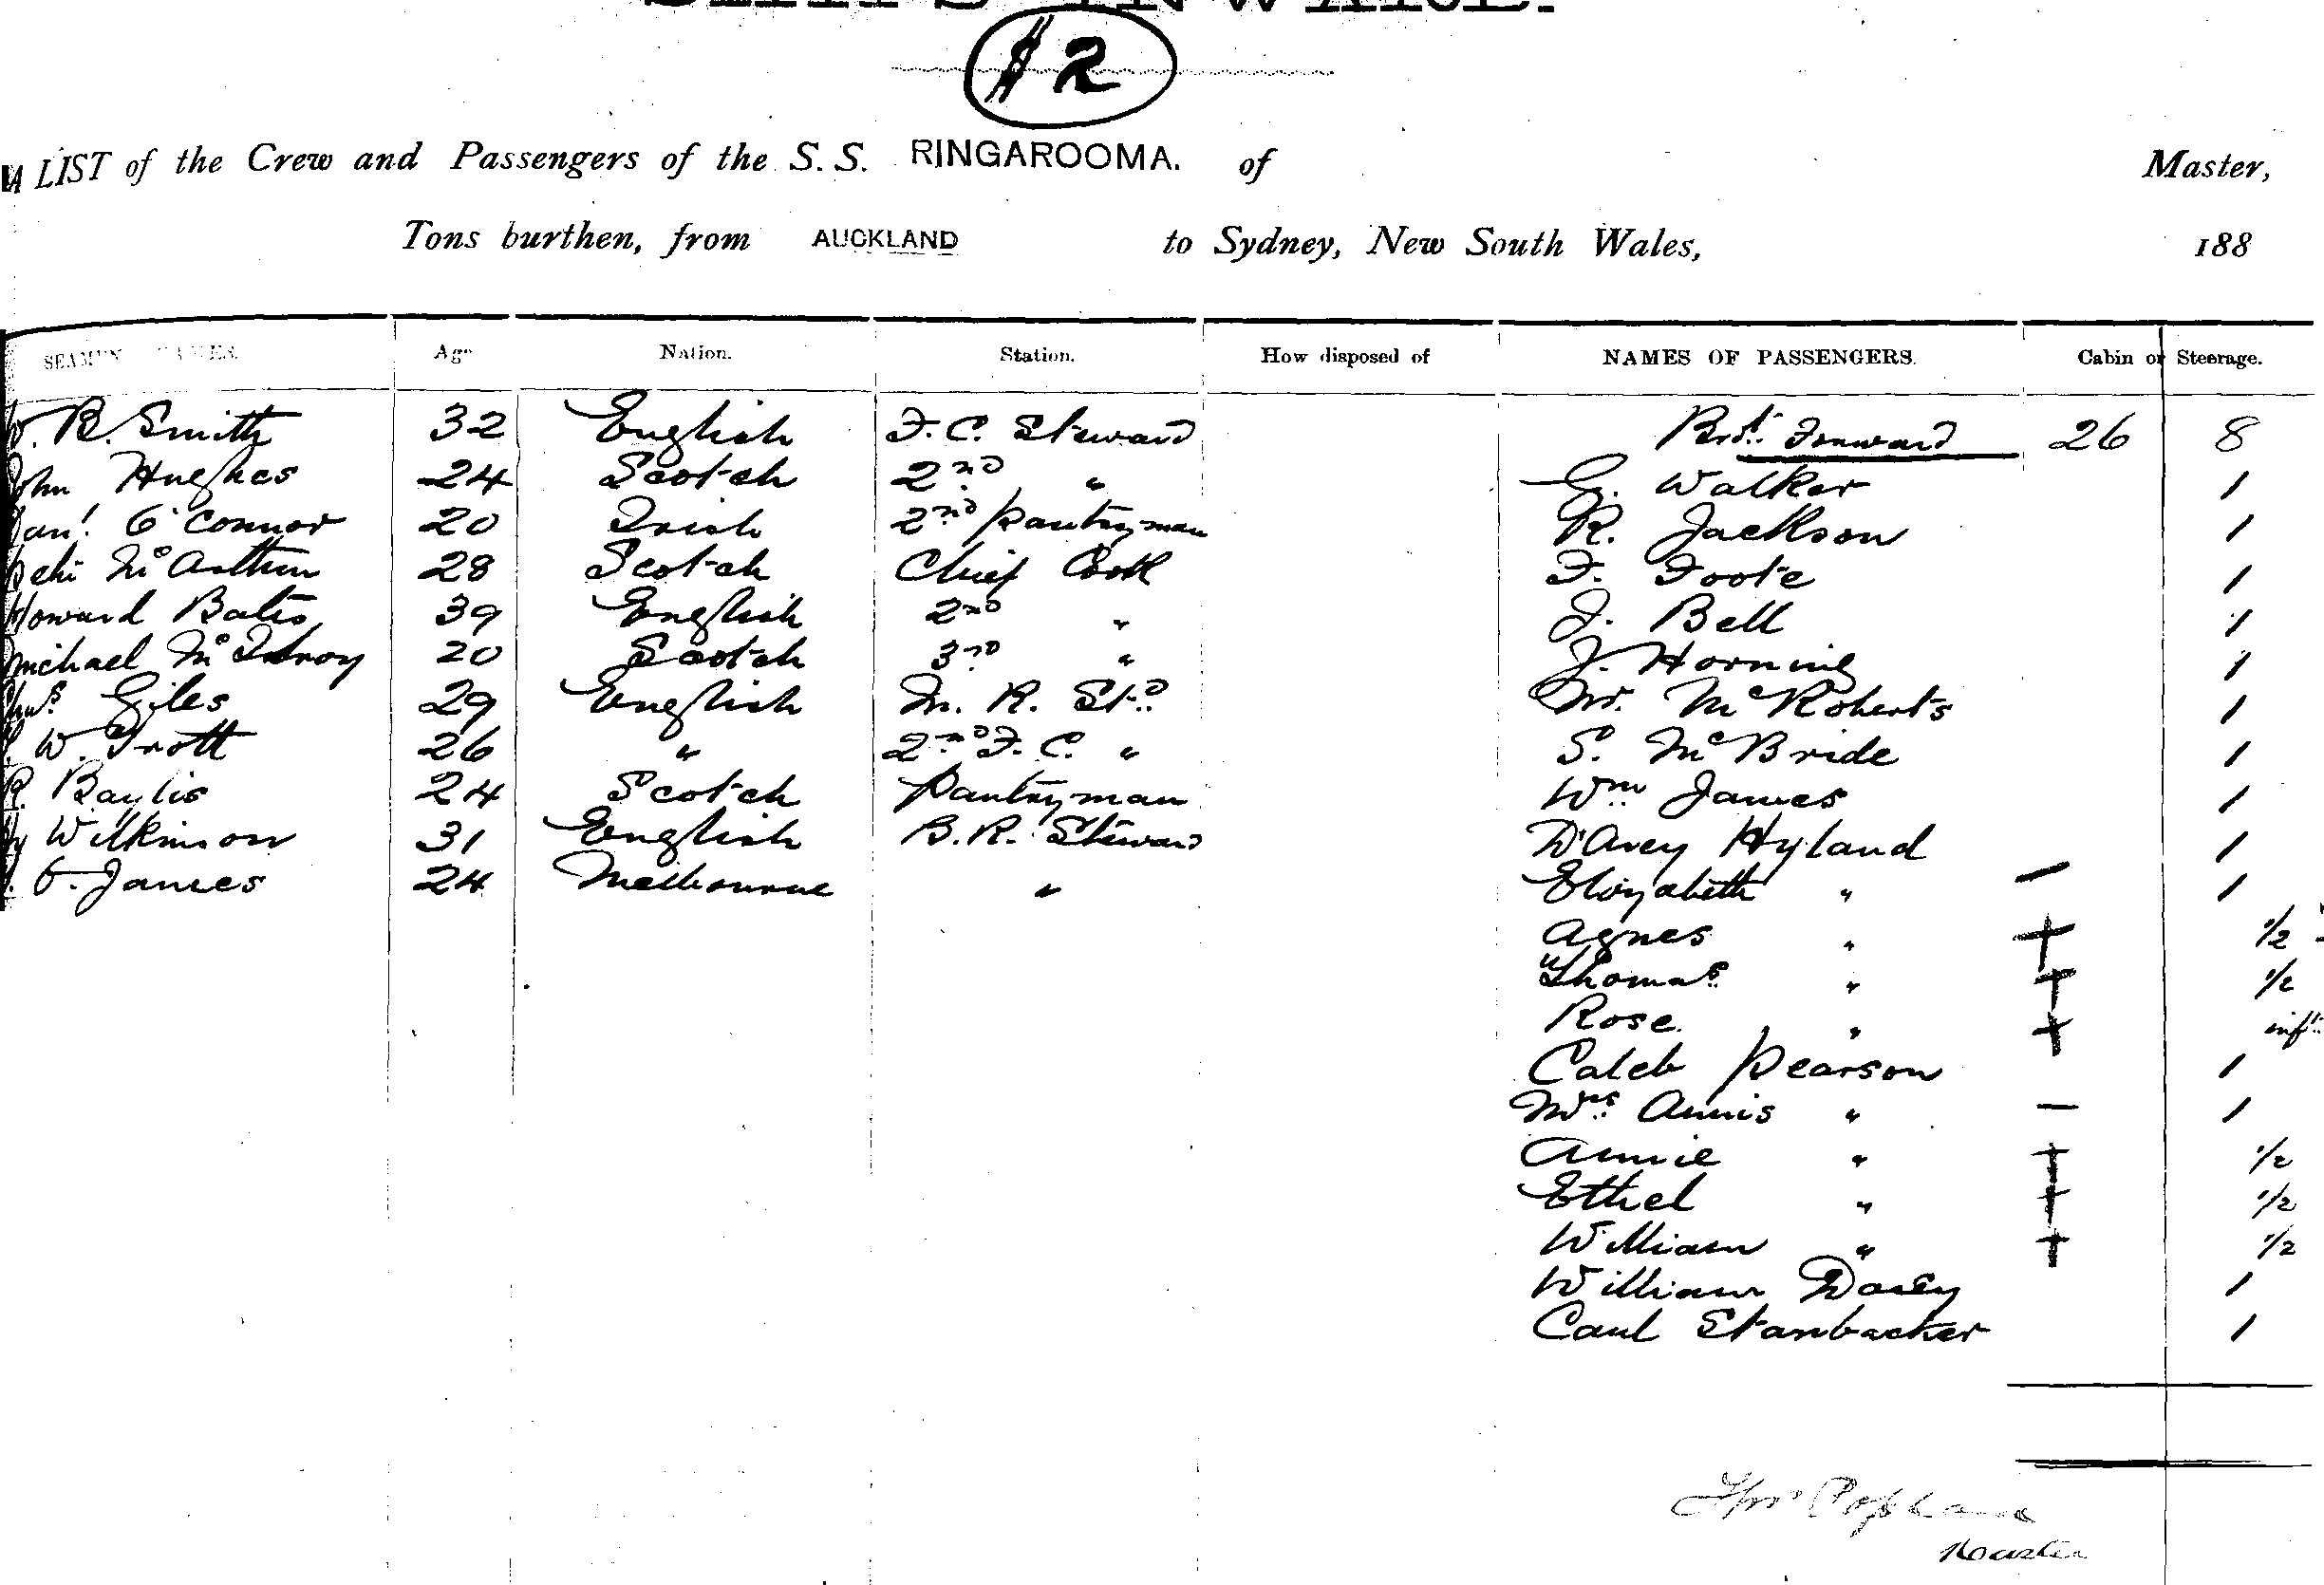 2
A LIST of the Crew and Passengers of the S. S. RINGAROOMA. of Master,
Tons burthen, from AUCKLAND to Sydney, New South Wales, 188
SEAMEN'S NAMES. Age Nation. Station. How disposed of NAMES OF PASSENGERS. Cabin or Steerage.
W. B. Smith 32 English F. C. Steward Brot. Forward 26 8
John Hughes 24 Scotch 2nd " G. Walker 1
Danl. O'Connor 20 Irish 2nd Pantryman R. Jackson 1
McArthur 28 Scotch Chief Cook F. Foote 1
Howard Bates 39 English 2nd " J. Bell 1
Michael McIlroy 20 Scotch 3rd " J. Horning 1
Giles 29 English M. R. Std. Mr. McRoberts 1
W. Trott 26 " 2nd F. C. " S. McBride 1
R. Baylis 24 Scotch Pantryman Wm James 1
Wilkinson 31 English B. R. Steward D'Arcy Hyland 1
James 24 Melbourne " Elizabeth " — 1
Agnes " + 1/2
Thomas " + 1/2
Rose " + inft.
Caleb Pearson 1
Mrs. Annis " — 1
Annie " + 1/2
Ethel " + 1/2
William " + 1/2
William Daley 1
Carl Stanbacker 1
Popham
Master